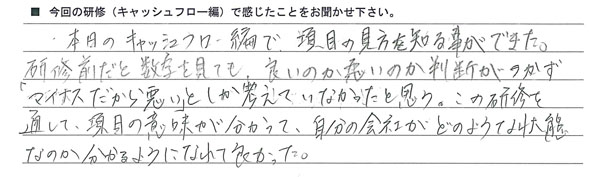 ■ 今回の研修（キャッシュフロー編）で感じたことをお聞かせ下さい。
・本日のキャッシュフロー編で、項目の見方を知る事ができた。
研修前だと数字を見ても、良いのか悪いのか判断がつかず
「マイナスだから悪い」としか考えていなかったと思う。この研修を
通して、項目の意味が分かって、自分の会社がどのような状態
なのか分かるようになれて良かった。